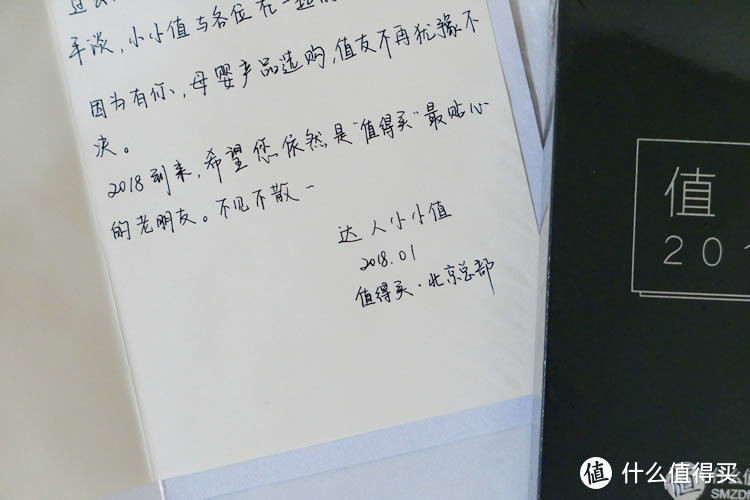 手谈,小小值与各位在一起的
因为有你、母婴产品选购,值友不再犹豫不
决。
2018到来,希望您依然是“值得买”最贴心
的老朋友。不见不散一
达人小小值
2018.01
值得买·北京总部
值
201
值 什么值得买
SMZD